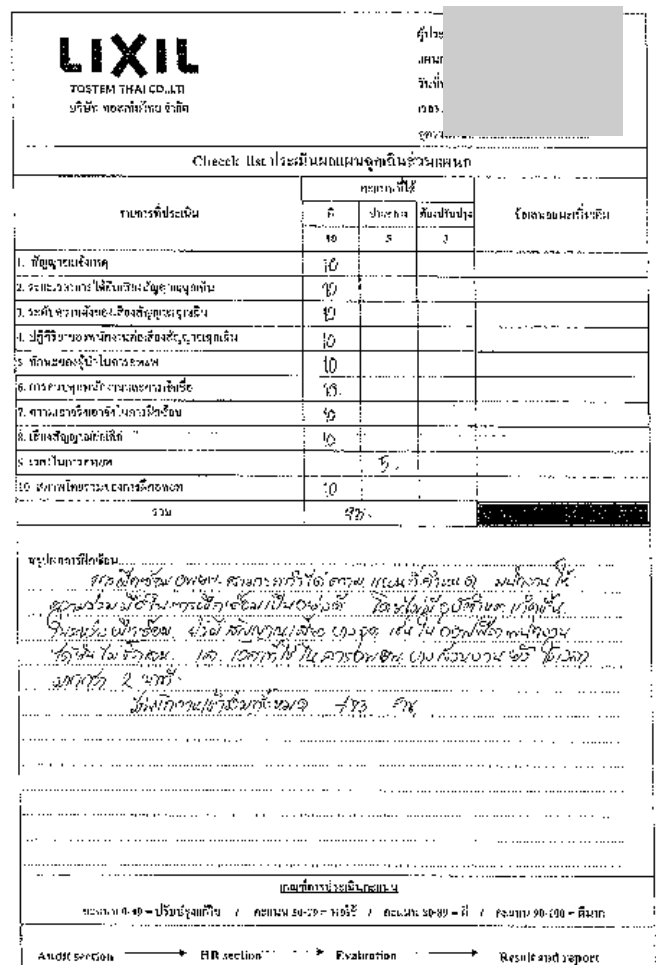 LIXIL
TOSTEM THAI CO.,LTD
บริษัท ทอสเท็มไทย จำกัด
ผู้ประ
แผนก
วันที่
เวลา
Cheeck list ประเมินผลแผนฉุกเฉินส่วนแผนก
รายการที่ประเมิน
คะแนนที่ได้
ข้อเสนอแนะเพิ่มเติม
ดี
ปานกลาง
ต้องปรับปรุง
10
5
1. สัญญาณแจ้งเหตุ 10
2. ระยะเวลาการได้ยินเสียงสัญญาณฉุกเฉิน 10
3. ระดับความดังของเสียงสัญญาณฉุกเฉิน 10
4. ปฏิกิริยาของพนักงานต่อเสียงสัญญาณฉุกเฉิน 10
5. ทักษะของผู้นำในการอพยพ 10
6. การควบคุมพนักงานและการเช็คชื่อ 10
7. ความเอาจริงเอาจังในการฝึกซ้อม 10
8. เสียงสัญญาณ 10
9. เวลาในการอพยพ 5
10. สภาพโดยรวมของการฝึกอพยพ 10
รวม 95
สรุปผลการฝึกซ้อม
การฝึกซ้อมอพยพ สามารถทำได้ตามแผนที่กำหนด พนักงานให้
ความร่วมมือในการฝึกซ้อมเป็นอย่างดี โดยไม่มีอุบัติเหตุเกิดขึ้น
ในระหว่างฝึกซ้อม มีสัญญาณเสียงบางจุด เช่น ใน พนักงาน
ได้ยินไม่ชัดเจน เวลาที่ใช้ในการอพยพ บางส่วนงาน ใช้เวลา
มากกว่า 2 นาที
พนักงานเข้าร่วมทั้งหมด คน
เกณฑ์การประเมินคะแนน
คะแนน 0-49 = ปรับปรุงแก้ไข / คะแนน 50-79 = พอใช้ / คะแนน 80-89 = ดี / คะแนน 90-100 = ดีมาก
Audit section HR section Evaluation Result and report